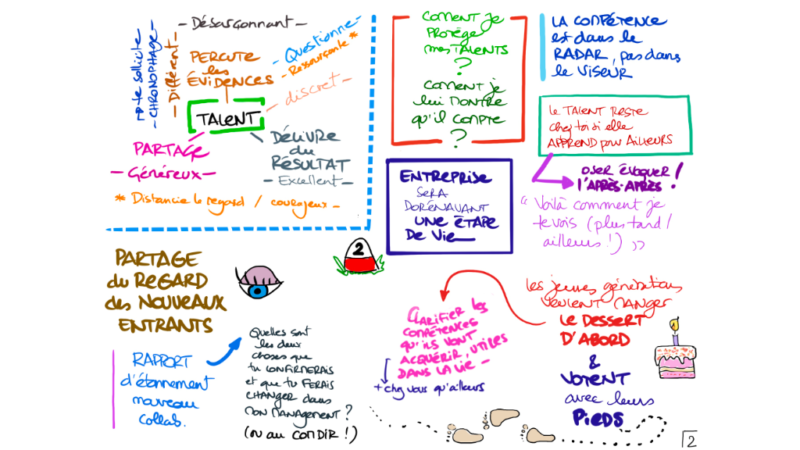 - Désarçonnant -
note sollicité
- CHRONOPHAGE -
- Différent -
PERCUTE
les
ÉVIDENCES
- Questionne -
- Ressourçante *
- discret -
TALENT
PARTAGE
- Généreux -
DÉLIVRE
du
RÉSULTAT
- Excellent -
* Distancie le regard / courageux -
Comment je
PROTÈGE
mes TALENTS
?
Comment je
lui montre
qu'il compte
?
LA COMPÉTENCE
est dans le
RADAR, pas dans
le VISEUR
Le TALENT RESTE
chez toi si elle
APPREND pour AILLEURS
OSER ÉVOQUER
l'APRÈS-APRÈS !
"Voilà comment je
te vois (plus tard /
ailleurs !) »
ENTREPRISE
SERA
DORÉNAVANT
UNE ÉTAPE
DE Vie
2
PARTAGE
du REGARD
des NOUVEAUX
ENTRANTS
RAPPORT
d'étonnement
nouveau
collab.
Quelles sont
les deux
choses que
tu CONFIRMERAIS
et que tu FERAIS
CHANGER dans
MON MANAGEMENT ?
(ou au CONDIR !)
CLARIFIER les
COMPÉTENCES
qu'ils VONT
ACQUÉRIR, UTILES
DANS LA Vie -
+ chez vous qu'ailleurs
Les jeunes générations
VEULENT MANGER
LE DESSERT
D'ABORD
&
VOTENT
avec leurs
PIEDS
2